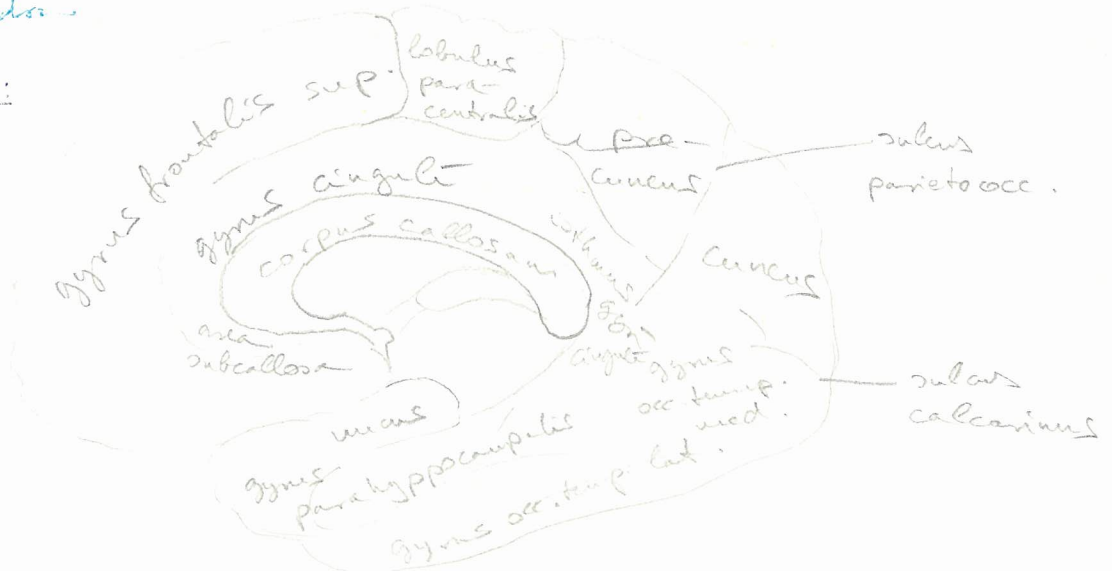 gyrus frontalis sup.
lobulus
para-
centralis
prae-
cuneus
sulcus
parietoocc.
gyrus cinguli
corpus callosum
isthmus
gyri
cinguli
cuneus
area
subcallosa
uncus
gyrus
parahyppocampalis
gyrus
occ. temp.
med.
gyrus occ. temp. lat.
sulcus
calcarinus